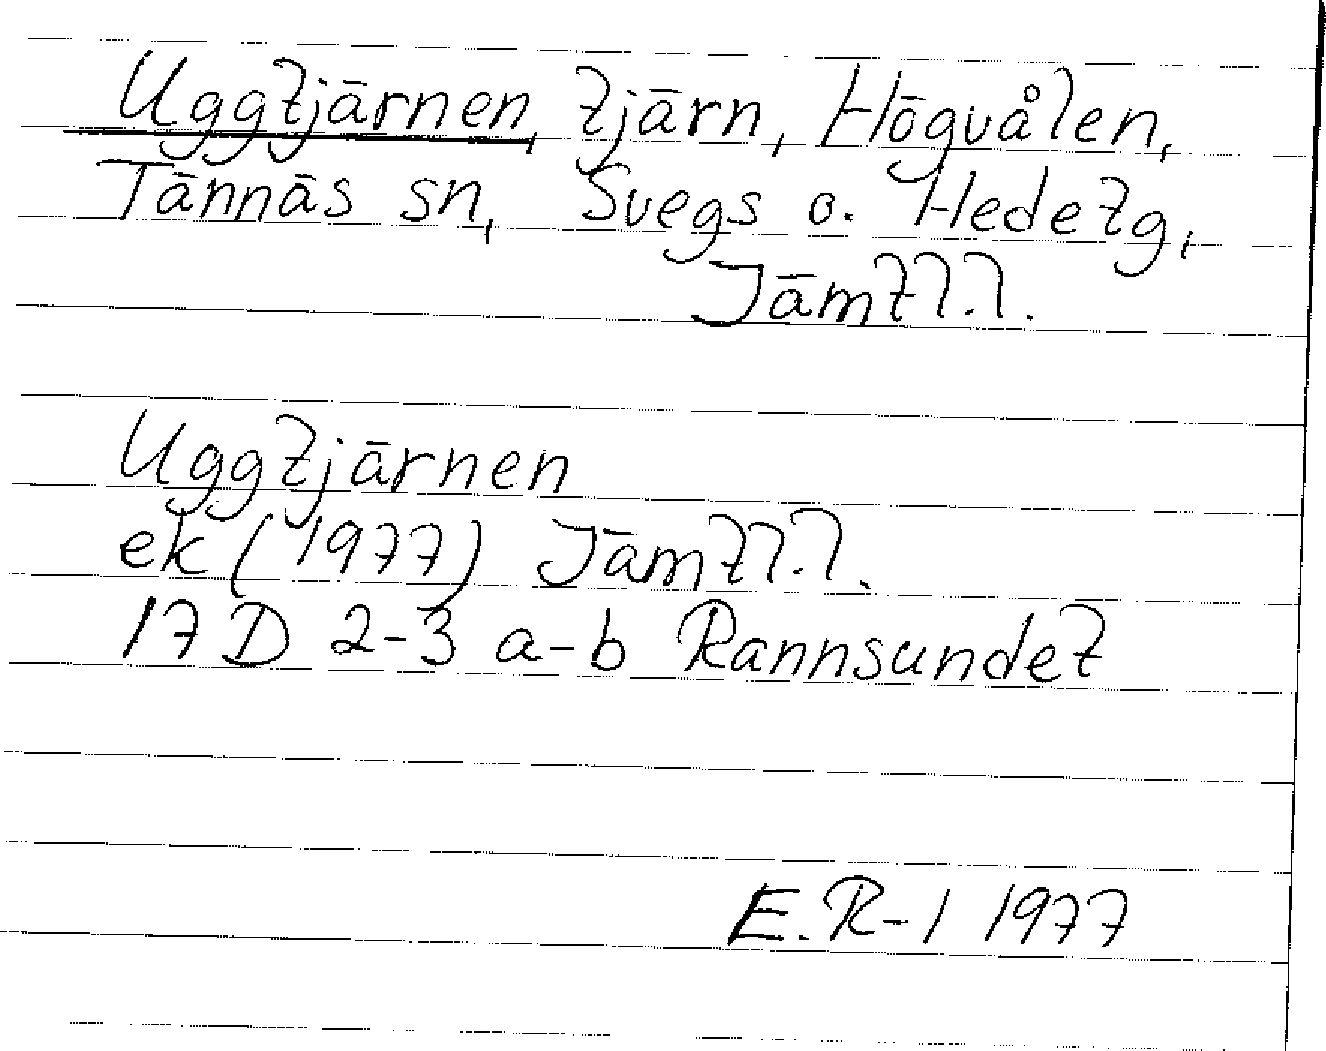 Uggtjärnen, tjärn, Högvålen,
Tännäs sn, Svegs o. Hedetg,
Jämtl.l.
Uggtjärnen
ek (1977) Jämtl.l.
17 D 2-3 a-b Rannsundet
E.R-l 1977